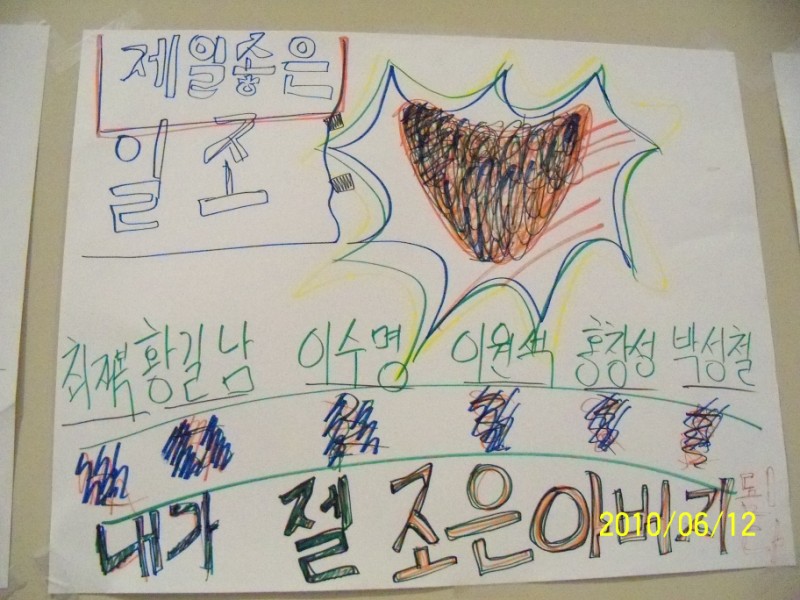 제일좋은
일조
황길남 이수명 이원색 홍창성 박성철
내가 젤 조은아버지
2010/06/12